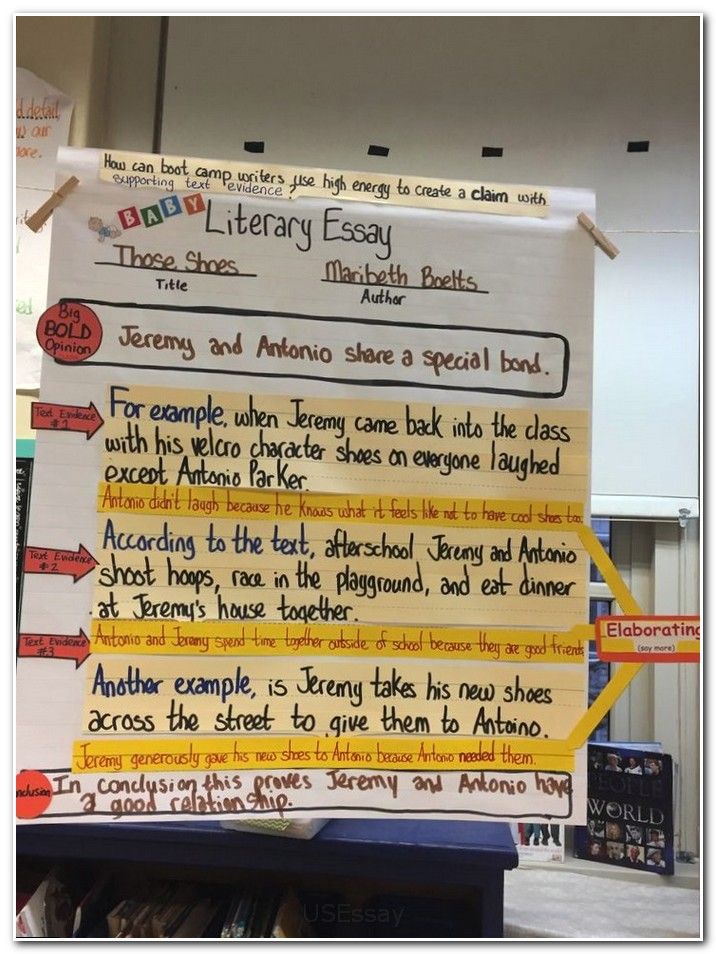 d detail,
our
ore.
How can boot camp writers use high energy to create a claim with
supporting text evidence?
BABY
Literary Essay
Those Shoes
Maribeth Boelts
Title
Author
Big
BOLD
Opinion
Jeremy and Antonio share a special bond.
Text Evidence
#1
For example, when Jeremy came back into the class
with his velcro character shoes on everyone laughed
except Antonio Parker.
Antonio didn't laugh because he knows what it feels like not to have cool shoes too.
Text Evidence
#2
According to the text, afterschool Jeremy and Antonio
shoot hoops, race in the playground, and eat dinner
at Jeremy's house together.
Text Evidence
#3
Antonio and Jeremy spend time together outside of school because they are good friends
Elaborating
(say more)
Another example, is Jeremy takes his new shoes
across the street to give them to Antoino.
Jeremy generously gave his new shoes to Antonio because Antonio needed them.
nclusion
In conclusion this proves Jeremy and Antonio have
a good relationship.
PEOPLE
WORLD
USEssay